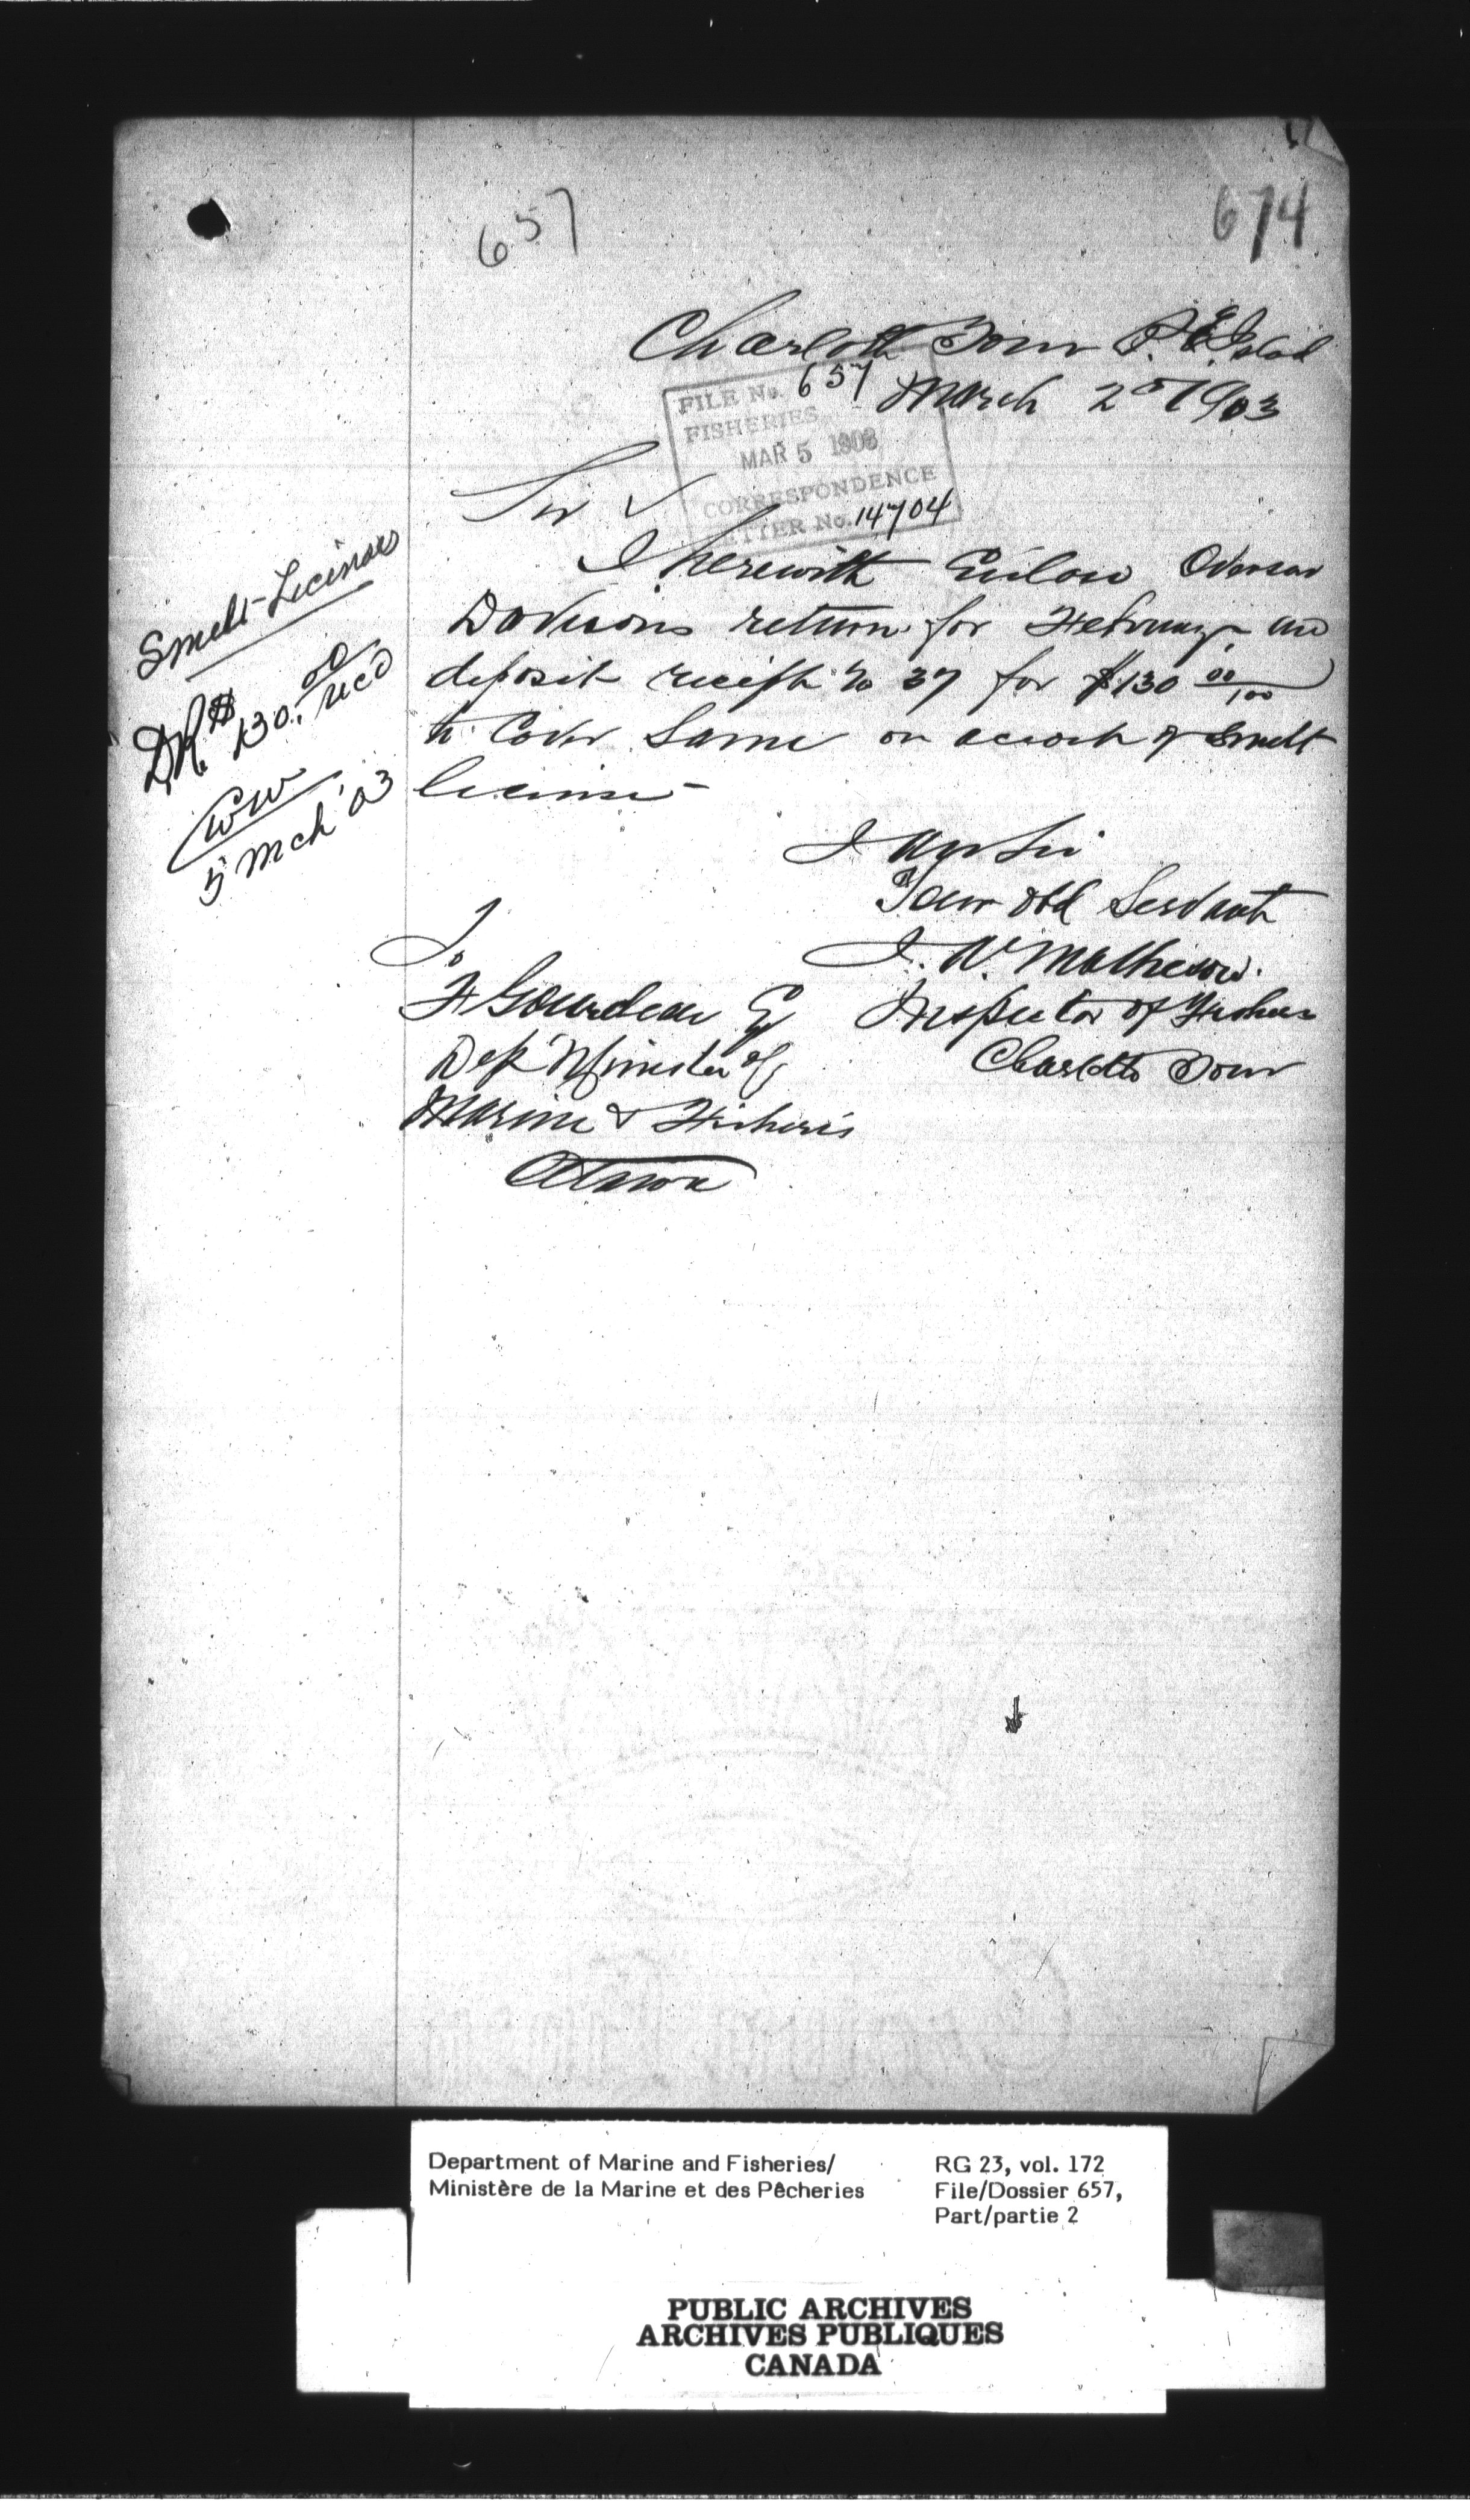 657
674
Charlotte Town P. E. Island
March 2nd 1903
FILE No. 657
FISHERIES
MAR 5 1903
CORRESPONDENCE
LETTER No. 14704
Sir
I herewith Enclose Overseer
Davisons return for February and
deposit receipt No 37 for $130 00/100
to Cover Same on account of Smelt
license -
I am Sir
Your Obd Servant
J. A. Matheson
Inspector of Fisheries
Charlotte Town
To
F Gourdeau Esq
Dep Minister of
Marine & Fisheries
Ottawa
Smelt Licenses
DR. $130.00 rec'd
CW
5 Mch '03
Department of Marine and Fisheries/
Ministère de la Marine et des Pêcheries
RG 23, vol. 172
File/Dossier 657,
Part/partie 2
PUBLIC ARCHIVES
ARCHIVES PUBLIQUES
CANADA